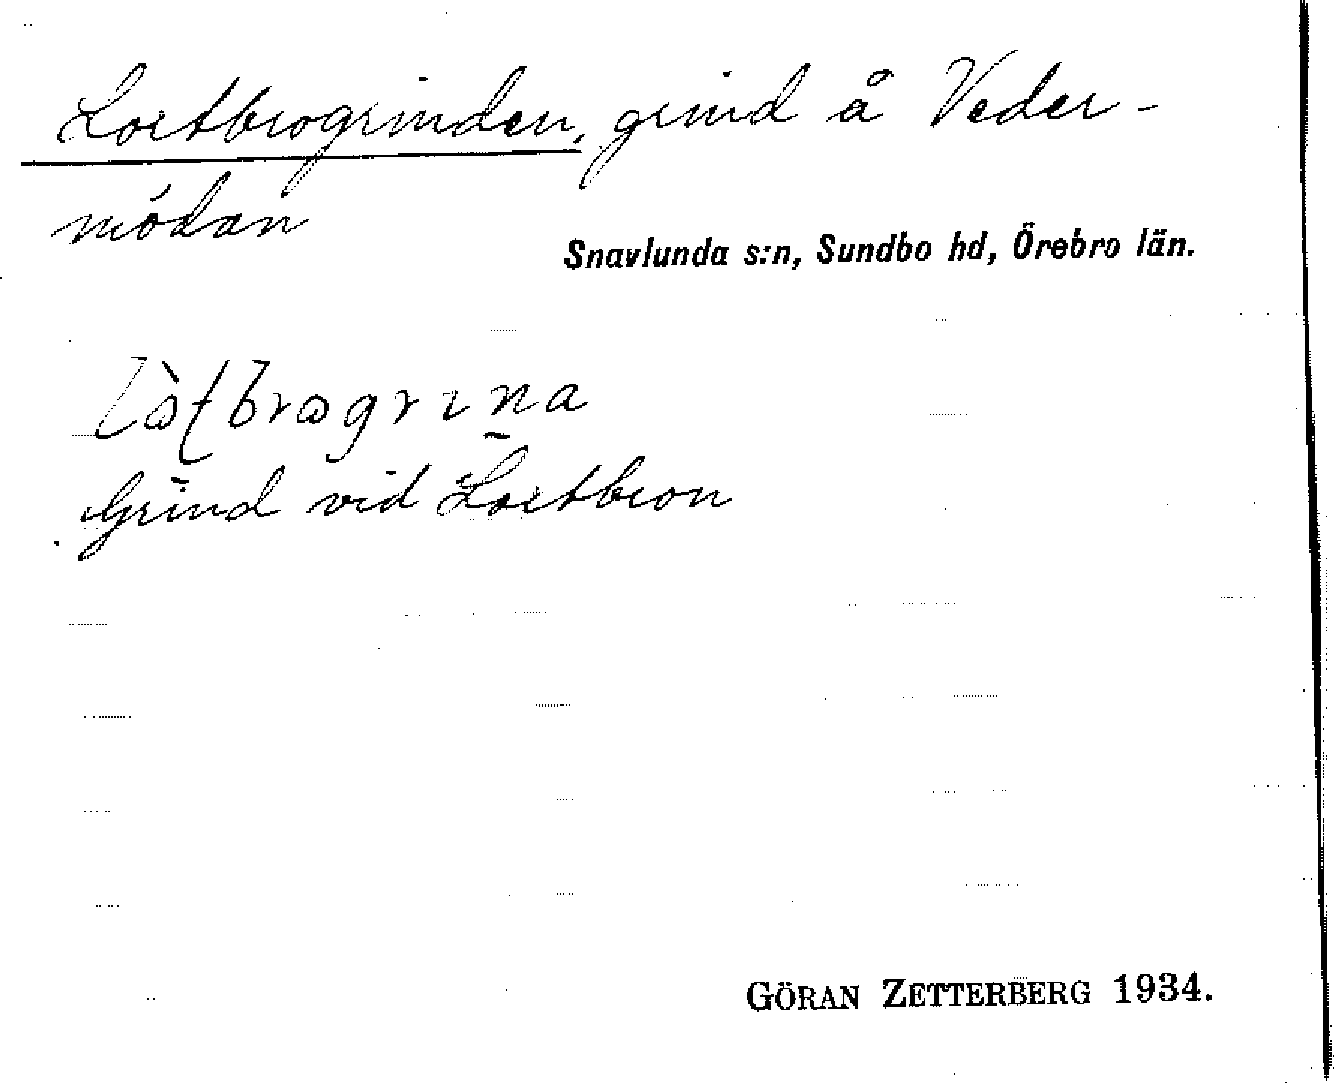 Lortbrogrinden, grind å Veder-
mödan
Snavlunda s:n, Sundbo hd, Örebro län.
Grind vid Lortbron
GÖRAN ZETTERBERG 1934.